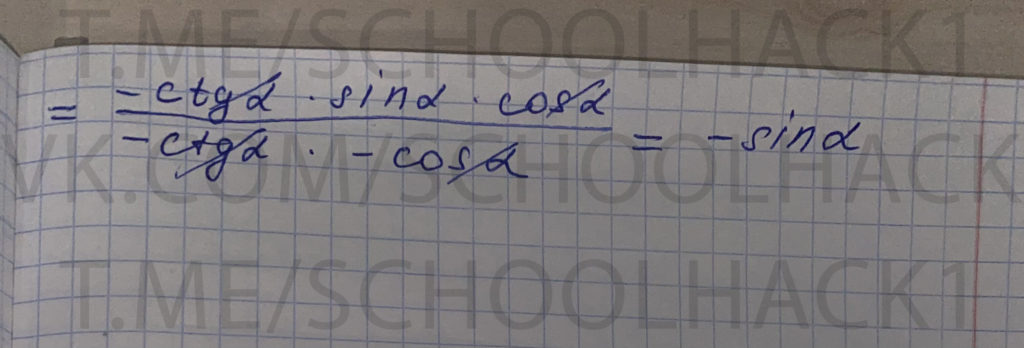 T.ME/SCHOOLHACK1
= -ctgα · sinα · cosα / -ctgα · -cosα = -sinα
VK.COM/SCHOOLHACK
T.ME/SCHOOLHACK1